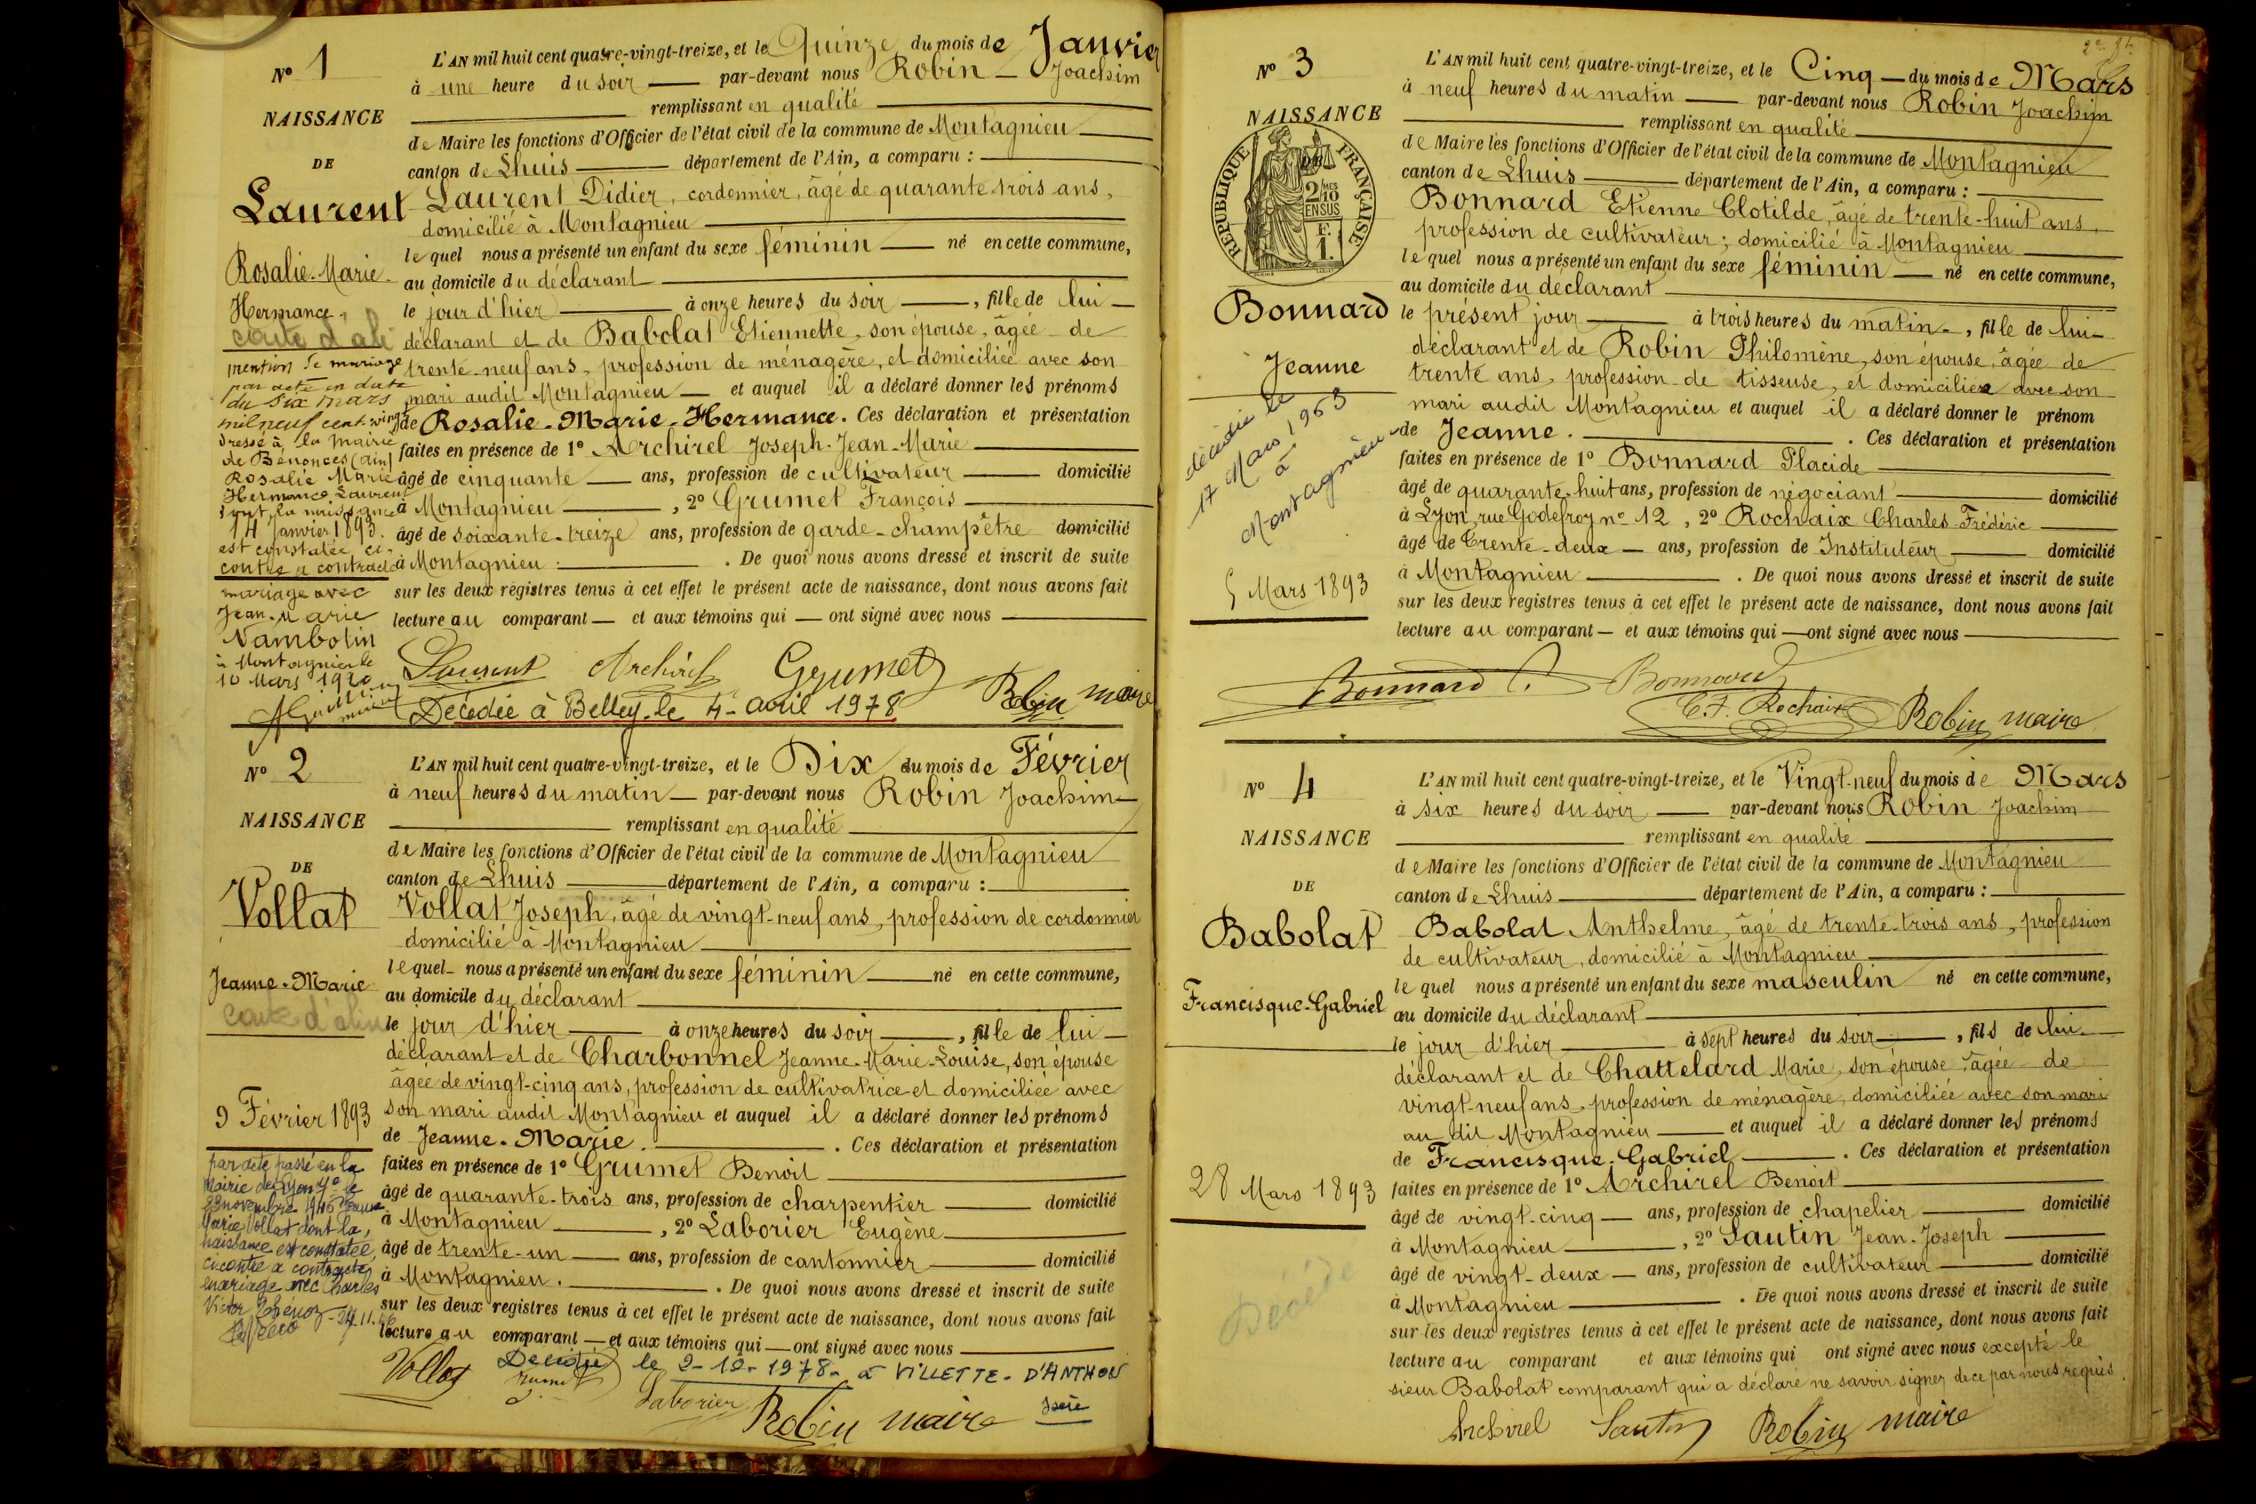 Nº 1
NAISSANCE
DE
Laurent
Rosalie-Marie-
Hermance.
carte d'ali
mention de mariage
par acte en date
du six mars
mil neuf cent vingt
dressé à la mairie
de Bénonces (Ain)
Rosalie Marie
Hermance Laurent
dont la naissance
14 Janvier 1893.
est constatée ci-
contre a contracté
mariage avec
Jean-Marie
Nambotin
à Montagnieu le
10 Mars 1920
L'AN mil huit cent quatre-vingt-treize, et le Quinze du mois de Janvier
à une heure du soir par-devant nous Robin Joachim
remplissant en qualité
de Maire les fonctions d'Officier de l'état civil de la commune de Montagnieu
canton de Lhuis département de l'Ain, a comparu :
Laurent Didier, cordonnier, âgé de quarante trois ans,
domicilié à Montagnieu
lequel nous a présenté un enfant du sexe féminin né en cette commune,
au domicile du déclarant
le jour d'hier à onze heures du soir, fille de lui
déclarant et de Babolat Etiennette, son épouse, âgée de
trente-neuf ans, profession de ménagère, et domiciliée avec son
mari audit Montagnieu et auquel il a déclaré donner les prénoms
de Rosalie-Marie-Hermance. Ces déclaration et présentation
faites en présence de 1º Archirel Joseph-Jean-Marie
âgé de cinquante ans, profession de cultivateur domicilié
à Montagnieu, 2º Grumet François
âgé de soixante-treize ans, profession de garde-champêtre domicilié
à Montagnieu. De quoi nous avons dressé et inscrit de suite
sur les deux registres tenus à cet effet le présent acte de naissance, dont nous avons fait
lecture au comparant et aux témoins qui ont signé avec nous
Laurent Archirel Grumet Robin maire
Décédée à Belley le 4 avril 1978
Nº 2
NAISSANCE
DE
Vollat
Jeanne-Marie
carte d'alim
9 Février 1893
par acte passé en la
mairie de Lyon 4e le
23 novembre 1946 Jeanne
Marie Vollat dont la
naissance est constatée
ci-contre a contracté
mariage avec Charles
Victor Thénoz - 24.11.46
L'AN mil huit cent quatre-vingt-treize, et le Dix du mois de Février
à neuf heures du matin par-devant nous Robin Joachim
remplissant en qualité
de Maire les fonctions d'Officier de l'état civil de la commune de Montagnieu
canton de Lhuis département de l'Ain, a comparu :
Vollat Joseph, âgé de vingt-neuf ans, profession de cordonnier
domicilié à Montagnieu
lequel nous a présenté un enfant du sexe féminin né en cette commune,
au domicile du déclarant
le jour d'hier à onze heures du soir, fille de lui
déclarant et de Charbonnel Jeanne-Marie-Louise, son épouse
âgée de vingt-cinq ans, profession de cultivatrice et domiciliée avec
son mari audit Montagnieu et auquel il a déclaré donner les prénoms
de Jeanne-Marie. Ces déclaration et présentation
faites en présence de 1º Grumet Benoit
âgé de quarante-trois ans, profession de charpentier domicilié
à Montagnieu, 2º Laborier Eugène
âgé de trente-un ans, profession de cantonnier domicilié
à Montagnieu. De quoi nous avons dressé et inscrit de suite
sur les deux registres tenus à cet effet le présent acte de naissance, dont nous avons fait
lecture au comparant et aux témoins qui ont signé avec nous
Décédée le 2-10-1978 à VILLETTE-D'ANTHON
Isère
Vollat Grumet Laborier Robin maire
Nº 3
NAISSANCE
DE
RÉPUBLIQUE FRANÇAISE
2/10MES
EN SUS
1F.
Bonnard
Jeanne
décédée le
17 Mars 1963
à
Montagnieu
5 Mars 1893
L'AN mil huit cent quatre-vingt-treize, et le Cinq du mois de Mars
à neuf heures du matin par-devant nous Robin Joachim
remplissant en qualité
de Maire les fonctions d'Officier de l'état civil de la commune de Montagnieu
canton de Lhuis département de l'Ain, a comparu :
Bonnard Etienne Clotilde, âgé de trente-huit ans,
profession de cultivateur, domicilié à Montagnieu
lequel nous a présenté un enfant du sexe féminin né en cette commune,
au domicile du déclarant
le présent jour à trois heures du matin, fille de lui
déclarant et de Robin Philomène, son épouse, âgée de
trente ans, profession de tisseuse, et domiciliée avec son
mari audit Montagnieu et auquel il a déclaré donner le prénom
de Jeanne. Ces déclaration et présentation
faites en présence de 1º Bonnard Placide
âgé de quarante-huit ans, profession de négociant domicilié
à Lyon, rue Godefroy nº 12, 2º Rochaix Charles-Frédéric
âgé de Trente-deux ans, profession de Instituteur domicilié
à Montagnieu. De quoi nous avons dressé et inscrit de suite
sur les deux registres tenus à cet effet le présent acte de naissance, dont nous avons fait
lecture au comparant et aux témoins qui ont signé avec nous
Bonnard Bonnard C.F. Rochaix Robin maire
Nº 4
NAISSANCE
DE
Babolat
Francisque-Gabriel
28 Mars 1893
Décédé
L'AN mil huit cent quatre-vingt-treize, et le Vingt-neuf du mois de Mars
à six heures du soir par-devant nous Robin Joachim
remplissant en qualité
de Maire les fonctions d'Officier de l'état civil de la commune de Montagnieu
canton de Lhuis département de l'Ain, a comparu :
Babolat Anthelme, âgé de trente-trois ans, profession
de cultivateur, domicilié à Montagnieu
lequel nous a présenté un enfant du sexe masculin né en cette commune,
au domicile du déclarant
le jour d'hier à sept heures du soir, fils de lui
déclarant et de Chattelard Marie, son épouse, âgée de
vingt-neuf ans, profession de ménagère, domiciliée avec son mari
au dit Montagnieu et auquel il a déclaré donner les prénoms
de Francisque-Gabriel. Ces déclaration et présentation
faites en présence de 1º Archirel Benoit
âgé de vingt-cinq ans, profession de chapelier domicilié
à Montagnieu, 2º Sautin Jean-Joseph
âgé de vingt-deux ans, profession de cultivateur domicilié
à Montagnieu. De quoi nous avons dressé et inscrit de suite
sur les deux registres tenus à cet effet le présent acte de naissance, dont nous avons fait
lecture au comparant et aux témoins qui ont signé avec nous excepté le
sieur Babolat comparant qui a déclaré ne savoir signer de ce par nous requis.
Archirel Sautin Robin maire